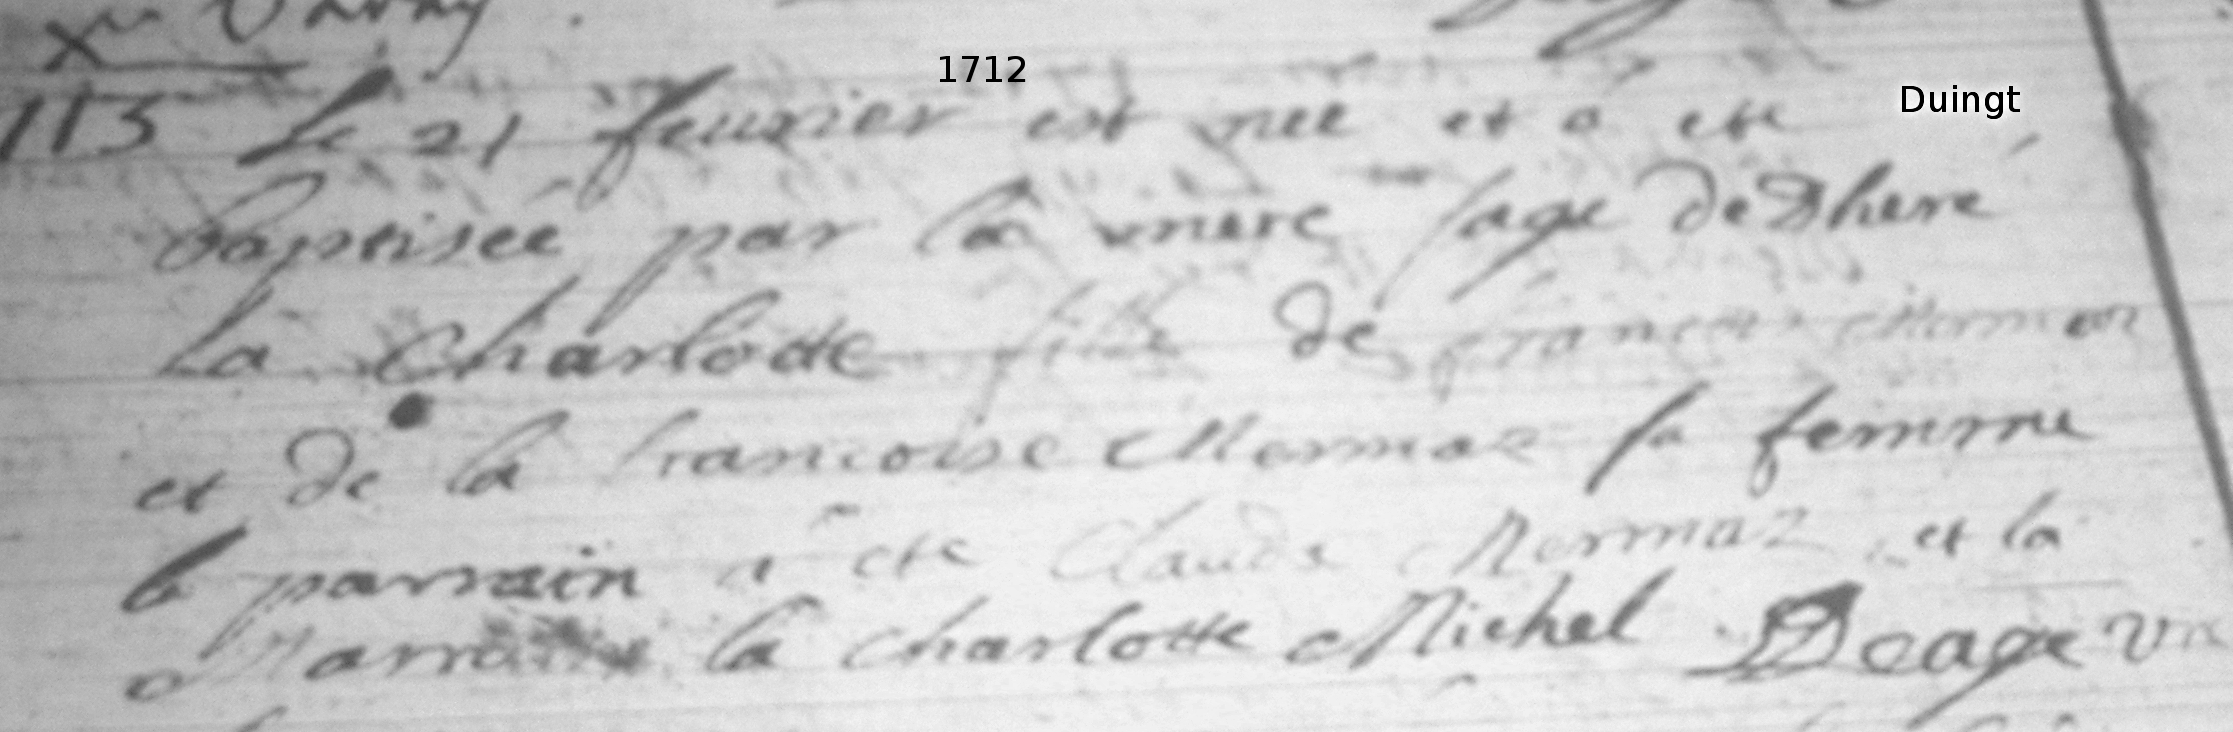 1712
Duingt
113 Le 21 feuurier est nee et a ete
baptisée par la mere sage de Dheré
La Charlotte fille de francois Mermoz
et de la francoise Mermaz sa femme
le parrain a ete Claude Mermaz et la
Marraine la charlotte Michel Deage vic